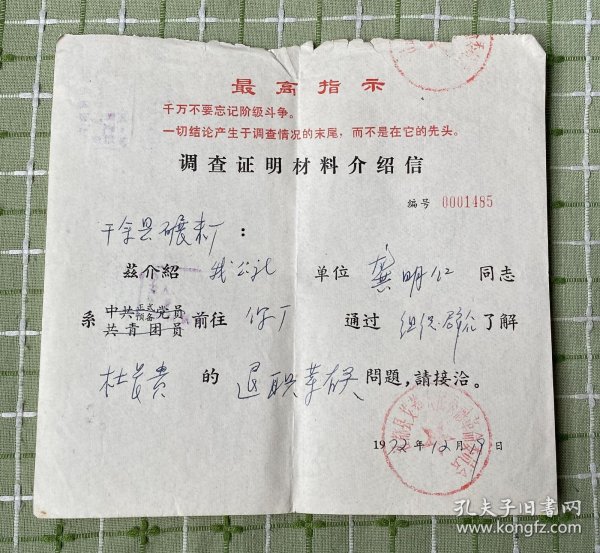 最高指示
千万不要忘记阶级斗争。
一切结论产生于调查情况的末尾，而不是在它的先头。
调查证明材料介绍信
编号 0001485
干余县碾米厂：
兹介紹 我公社 单位 龚明仁 同志
系 中共正式预备党员 共青团员 前往 你厂 通过 组织、群众 了解
杜 贵 的 退职 問題，請接洽。
1972年12月19日
孔夫子旧书网
www.kongfz.com